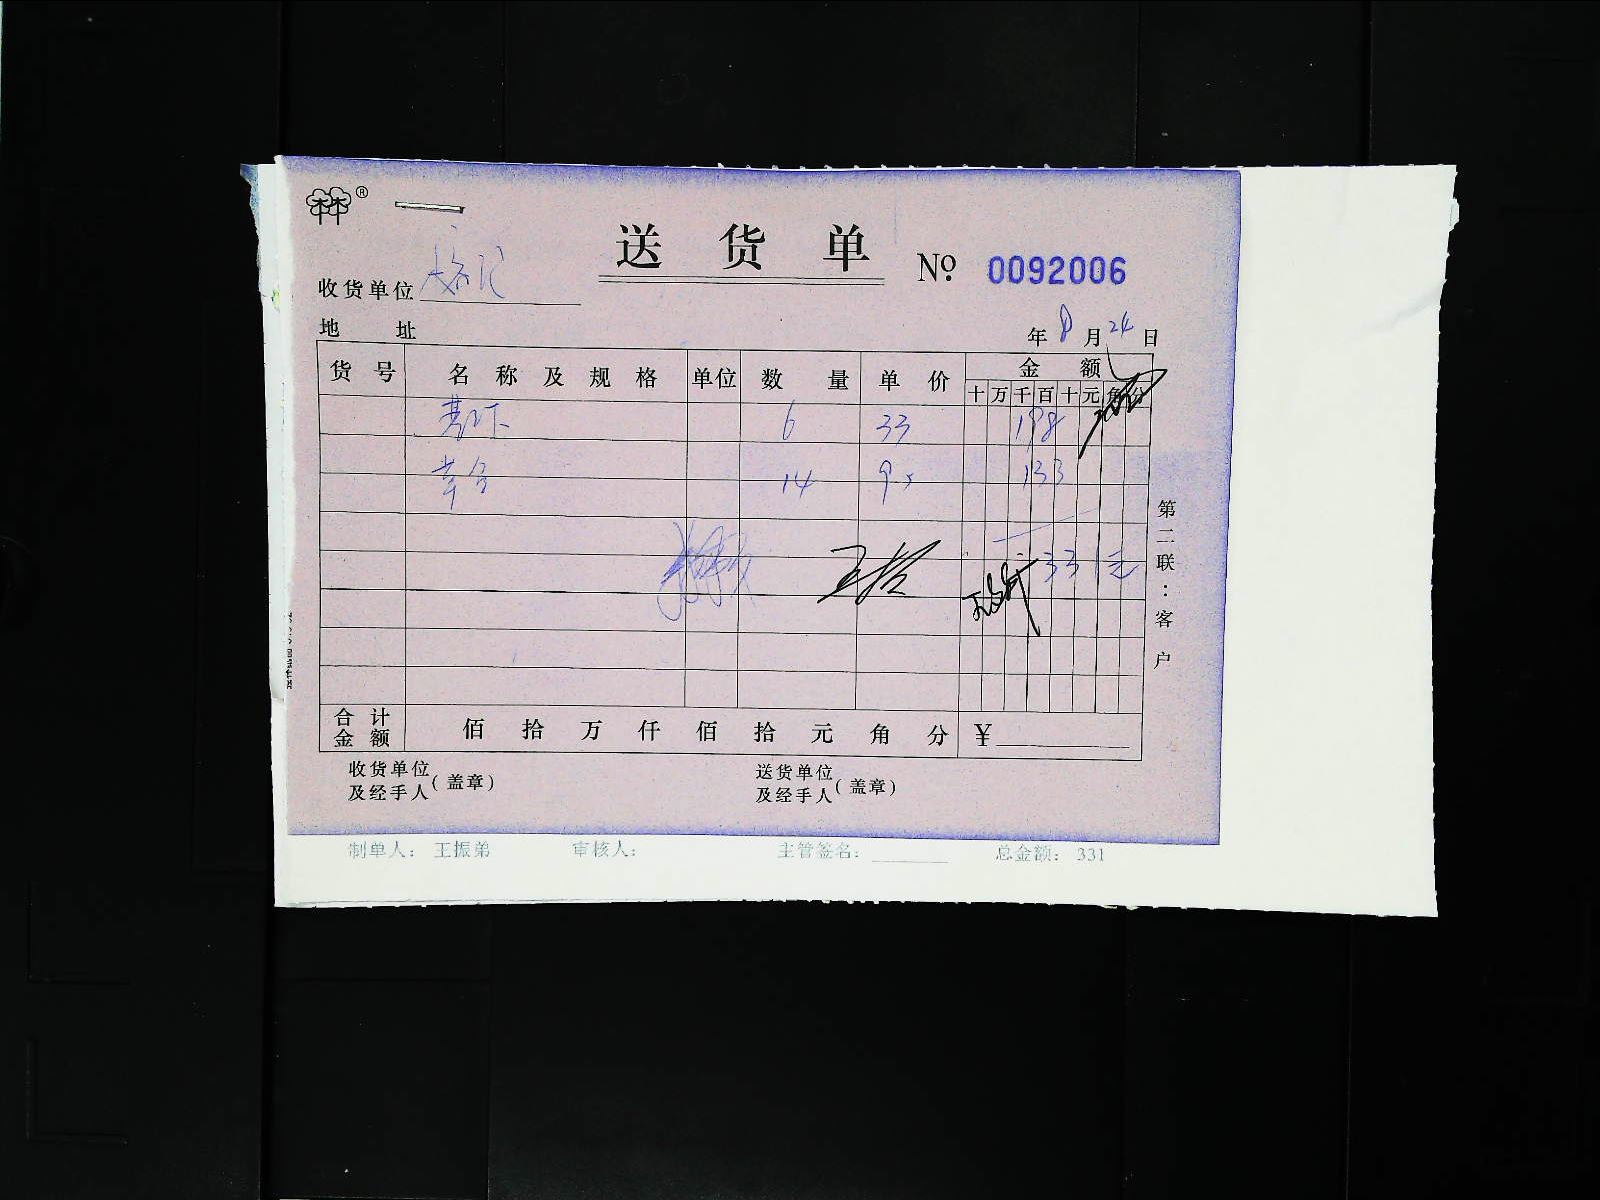 ®
送货单 № 0092006
收货单位
地址 年 8 月 24 日
货号 名称及规格 单位 数量 单价 金额
十 万 千 百 十 元 角 分
基围下 6 33 198
14 9.5 133
331元
第二联:客户
合计金额 佰 拾 万 仟 佰 拾 元 角 分 ¥
收货单位及经手人(盖章) 送货单位及经手人(盖章)
制单人: 王振弟 审核人: 主管签名: 总金额: 331